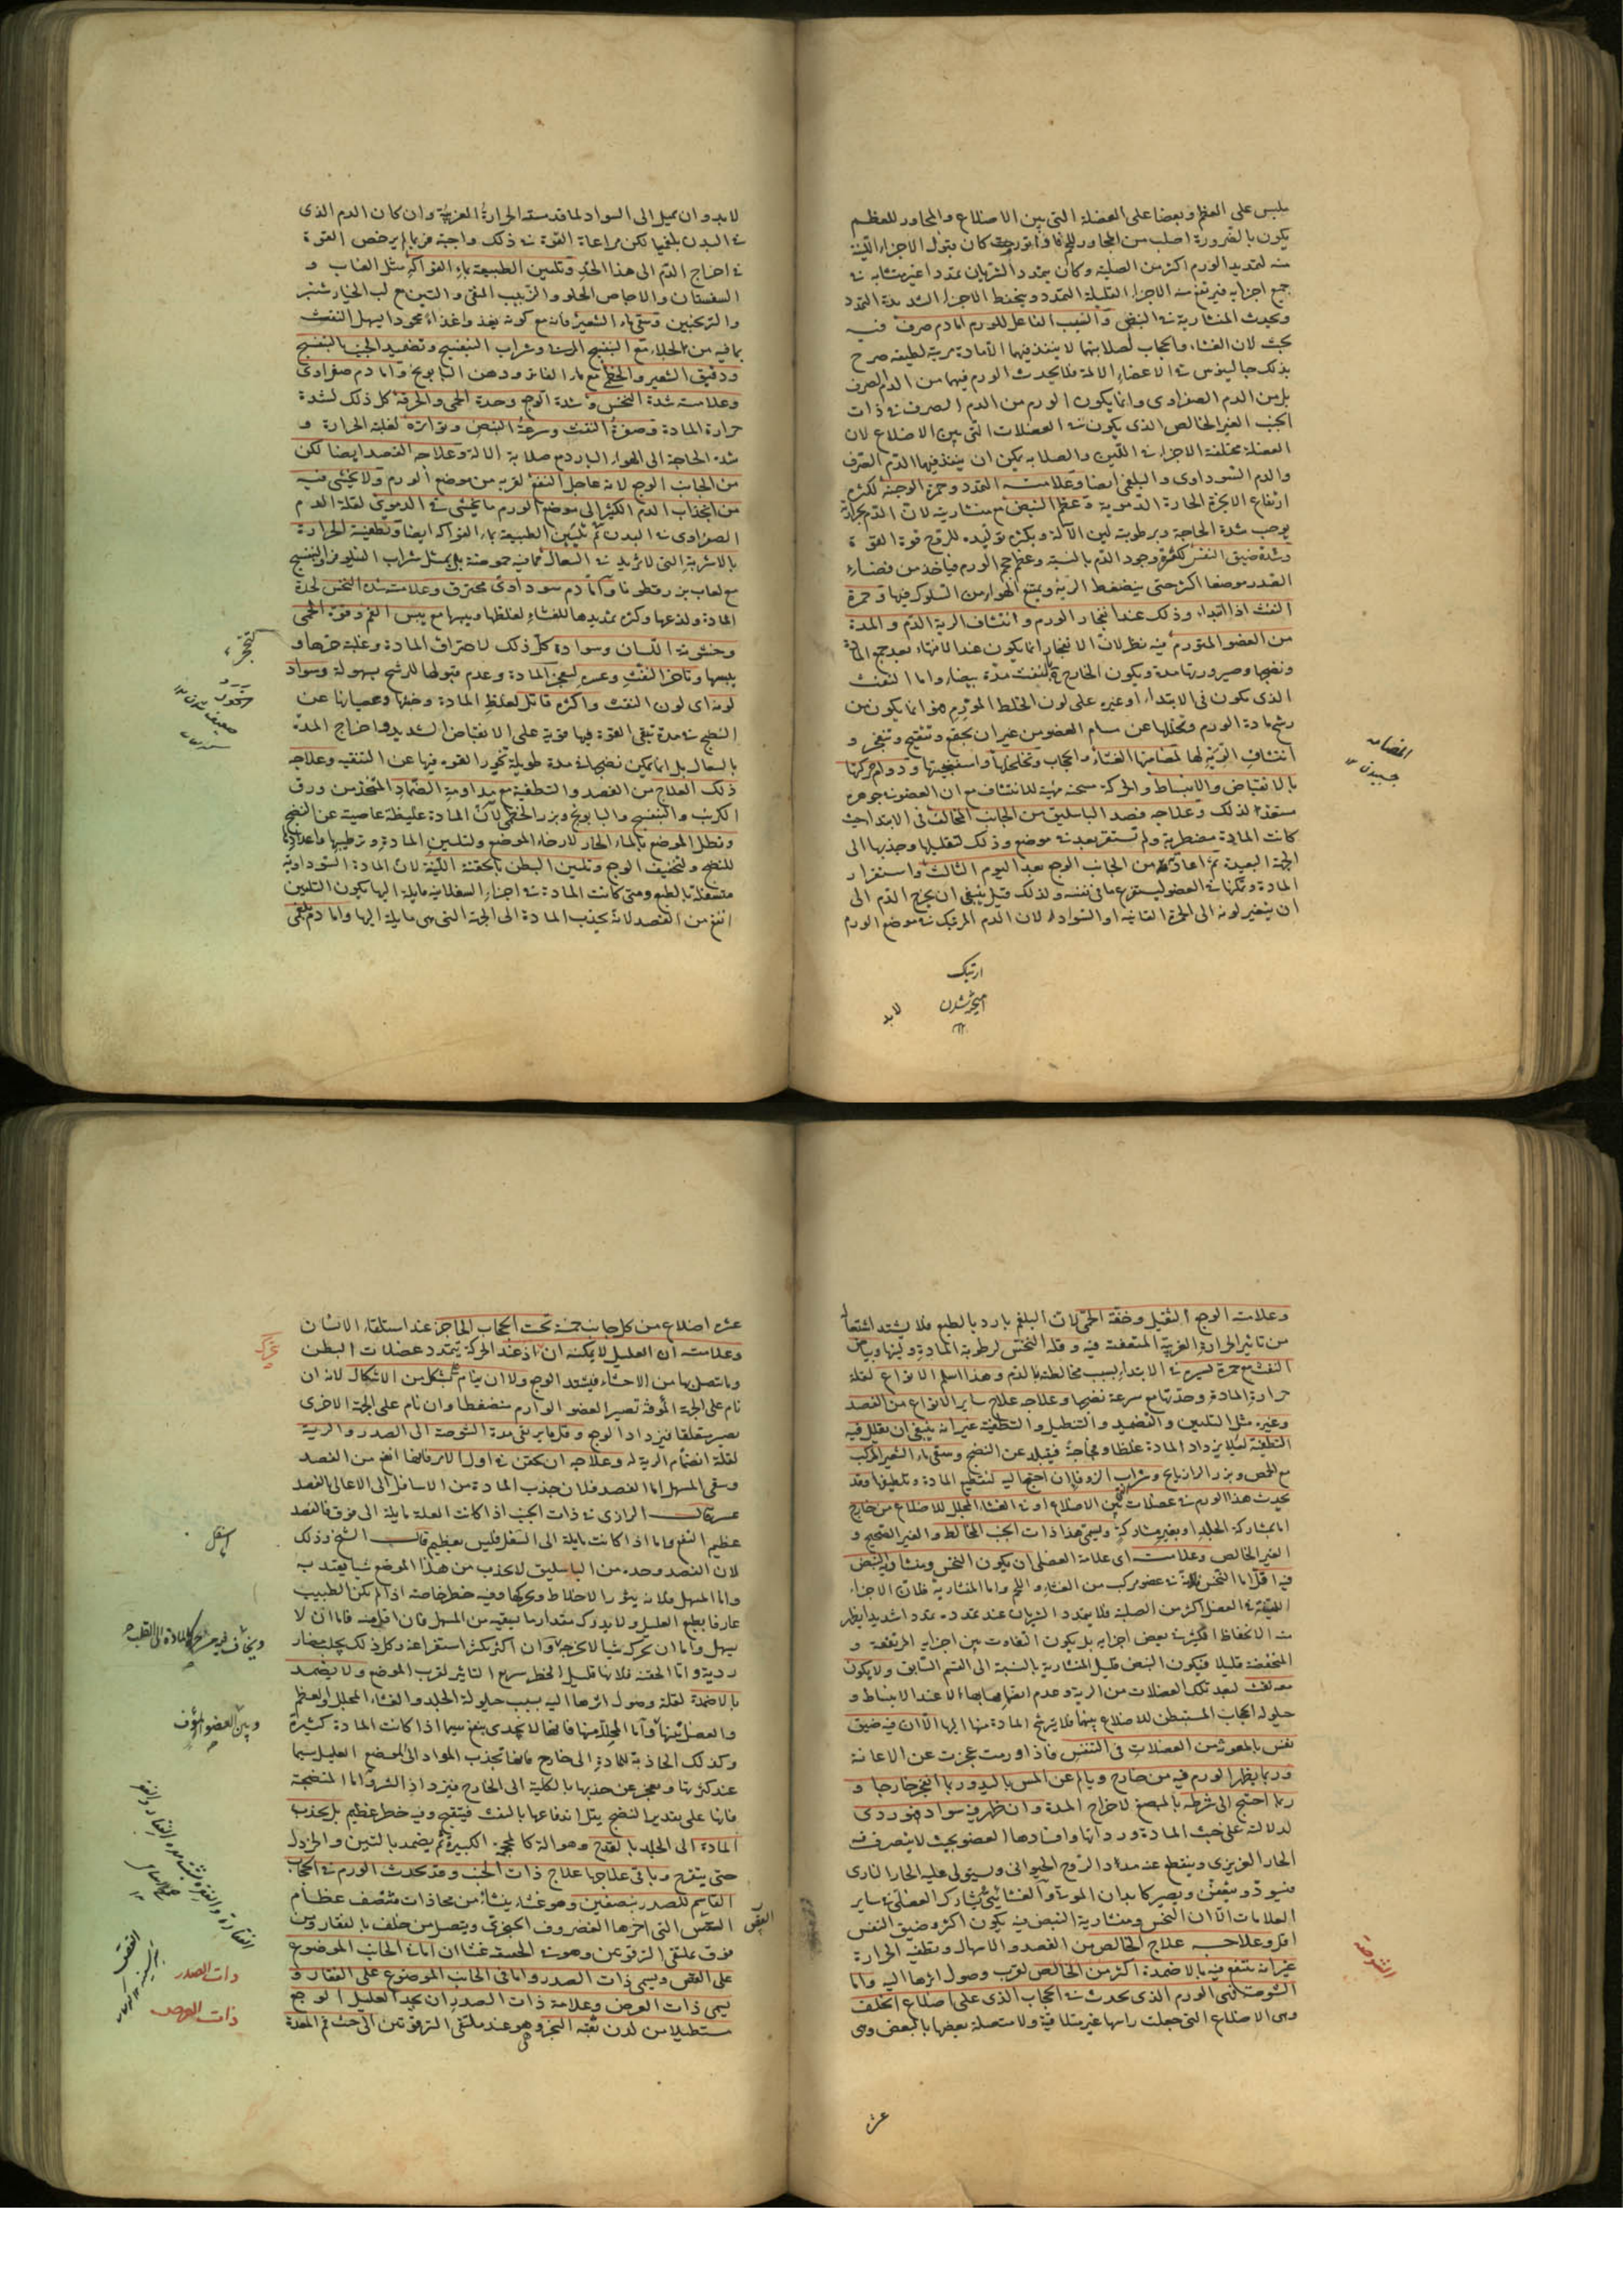 يلبس على العظم وبعضا على العضلة التى بين الاضلاع والمجاور للعظم
يكون بالضرورة اصلب من المجاور للحم فاذا تورمت كان قبول الاجزاء اللينة
منه لتمديد الورم اكثر من الصلبة وكان يتمدد الشريان تمددا غير متشابه فى
جميع اجزايه فيرتفع منه الاجزاء القليلة التمدد وينخفط الاجزاء الشديدة التمدد
ويحدث المنشارية فى النبض والسبب الفاعل للورم اما دم صرف فيه
بحث لان الغشاء والحجاب لصلابتها لا ينفذ فيهما الا مادة مرية لطيفة صرح
بذلك جالينوس فى الاعضاء الالمة فلا يحدث الورم فيهما من الدم الصرف
بل من الدم الصفراوى وانما يكون الورم من الدم الصرف فى ذات
الجنب الغير الخالص الذى يكون فى العضلات التى بين الاضلاع لان
العضلة مختلفة الاجزاء فى اللين والصلابة يمكن ان ينفذ فيها الدم الصرف
والدم السوداوى والبلغمى ايضا وعلامته التمدد وحمرة الوجنة لكثرة
ارتفاع الابخرة الحارة الدموية وعظم النبض مع منشارية لان الدم بحرارته
يوجب شدة الحاجة وبرطوبته لين الآلة وبكثرة توليده للروح قوة القوة
وشدة ضيق النفس لكثرة وجود الدم بالنسبة وعظم حجم الورم فياخذ من فضاء
الصدر موضعا اكثر حتى ينضغط الرية ويمتنع الهواء من السلوك فيها وحمرة
النفث اذا ابتداء وذلك عند انفجار الورم وانتشاف الرية الدم والمدة
من العضو المتورم فيه نظر لان الانفجار انما يكون عند الانتهاء بعد جمع المادة
ونضجها وصيرورتها مدة ويكون الخارج بالنفث مدة بيضاء واما النفث
الذى يكون فى الابتداء او غيره على لون الخلط المورم فهو انما يكون من
رشح مادة الورم وتحللها عن مسام العضو من غير ان يجتمع وتنضج وتنفجر و
انتشاف الرية لها لمضامتها الغشاء والحجاب وتخلخلها واسفنجيتها ودوام حركتها
بالانقباض والانبساط والحركة مسخنة مهيئة للانتشاف مع ان العضو فى جوهره
مستعد لذلك وعلاجه فصد الباسليق من الجانب المخالف فى الابتداء حيث
كانت المادة مضطربة ولم تستقر بعد فى موضع وذلك لتقليلها وجذبها الى
الجهة البعيدة ثم اعادته من الجانب الوجع بعد اليوم الثالث واستقرار
المادة وتمكنها فى العضو ليستفرغ ما فى نفسه ولذلك قيل ينبغى ان يخرج الدم الى
ان يتغير لونه الى الحمرة القانية او السواد لان الدم المرتبك فى موضع الورم
المضامه
ارتبك
لابد
لابد وان يميل الى السواد لما قد مسته الحرارة الغريبة وان كان الدم الذى
فى البدن بلغميا لكن مراعاة القوة فى ذلك واجبة فربما لم يرخص القوة
فى اخراج الدم الى هذا الحد وتليين الطبيعة بماء الفواكه مثل العناب و
السفستان والاجاص الحلو والزبيب المنقى والتين مع لب الخيار شنبر
والترنجبين وسقى ماء الشعير فانه مع كونه يغذو غذاء محمودا يسهل النفث
بما فيه من الجلاء مع البنفسج المربى وشراب البنفسج وتضميد الجنب بالبنفسج
ودقيق الشعير والخطمى مع ماء الفاتر ودهن البابونج واما دم صفراوى
وعلامته شدة النخس وشدة الوجع وحدة الحمى والحرقة كل ذلك لشدة
حرارة المادة وصفرة النفث وسرعة النبض وتواتره لغلبة الحرارة و
شدة الحاجة الى الهواء البارد مع صلابة الالة وعلاجه الفصد ايضا لكن
من الجانب الوجع لانه عاجل النفع لقربه من موضع الورم ولا يخشى فيه
من انجذاب الدم الكثير الى موضع الورم ما يخشى فى الدموى لقلة الدم
الصفراوى فى البدن ثم تليين الطبيعة بماء الفواكه ايضا وتطفية الحرارة
بالاشربة التى لا تزيد فى السعال مما فيه حموضة بل بمثل شراب النيلوفر والبنفسج
مع لعاب بزر قطونا واما دم سوداوى محترق وعلامته شدة النخس لحدة
المادة ولذعها وكثرة تمديدها للغشاء لغلظها ويبسها مع يبس الفم وقوة الحمى
وخشونة اللسان وسواده كل ذلك لاحتراق المادة وغلبة حرها و
يبسها وتاخر النفث وعسره لعجز المادة وعدم قبولها للرشح بسهولة وسواد
لونه اى لون النفث واكثره قاتل لغلظ المادة وخبثها وعصيانها عن
النضج فى مدة تبقى القوة فيها قوية على الانقباض الشديد واخراج المدة
بالسعال بل انما يمكن نضجها فى مدة طويلة تخور القوة فيها عن التنقية وعلاجه
ذلك العلاج من الفصد والتطفية مع مداومة الضماد المتخذ من ورق
الكرنب والبنفسج والبابونج وبزر الخطمى لان المادة غليظة عاصية عن النضج
ونطل الموضع بالماء الحار لارخاء الموضع ولتليين المادة وترطيبها واعدادها
للنضج ولتخفيف الوجع وتليين البطن بالحقنة اللينة لان المادة السوداوية
متسفلة بالطبع ومتى كانت المادة فى اجزاء السفلانية مايلة اليها يكون التليين
انفع من الفصد لانه يجذب المادة الى الجهة التى هى مايلة اليها واما دم بلغمى
وعلامته الوجع الثقيل وخفة الحمى لان البلغم بارد بالطبع فلا يشتد اشتعاله
من تاثير الحرارة الغريبة المتعفنة فيه وقلة النخس لرطوبة المادة ولينها وبياض
النفث مع حمرة يسيرة فى الابتداء بسبب مخالطته بالدم وهذا اسلم الانواع لقلة
حرارة المادة وحدتها مع سرعة نضجها وعلاجه علاج ساير الانواع من الفصد
وغيره مثل التليين والتضميد والتنطيل والتطفية غير انه ينبغى ان يقلل فيه
التطفية لئلا يزداد المادة غلظا وفجاجة فيبطؤ عن النضج وسقى ماء الشعير المركب
مع الحمص وبزر الرازيانج وشراب الزوفا ان احتيج اليه لتقطيع المادة وتلطيفها وقد
يحدث هذا الورم فى عضلات بين الاضلاع او فى الغشاء المجلل للاضلاع من خارج
اما بمشاركة الجلد او بغير مشاركة ويسمى هذا ذات الجنب المخالط والغير الصحيح و
الغير الخالص وعلامته اى علامة العضلى ان يكون النخس ومنشارية النبض
فيه اقل اما النخس فلانه فى عضو مركب من الغشاء واللحم واما المنشارية فلان الاجزاء
اللينة فى العضل اكثر من الصلبة فلا يتمدد الشريان عند تمدده تمددا شديدا يظهر
منه الانخفاظ الكثير فى بعض اجزايه بل يكون التفاوت بين اجزايه المرتفعة و
المنخفضة قليلا فيكون النبض قليل المنشارية بالنسبة الى القسم السابق ولا يكون
معه نفث لبعد تلك العضلات من الرية وعدم انضمامها بها الا عند الانبساط و
حيلولة الحجاب المستبطن للاضلاع بينهما فلا يترشح المادة منها اليها الا ان فيه ضيق
نفس بالمعونة من العضلات فى التنفس فاذا ورمت عجزت عن الاعانة
وربما يظهر الورم فيه من خارج ويألم عن المس باليد وربما انفجر خارجا و
ربما احتيج الى شرطه بالمبضع لاخراج المدة وان ظهر فى سواد فهو ردى
لدلالته على خبث المادة ورداتها وافسادها العضو بحيث لا يتصرف فيه
الحار الغريزى وينقطع عنه مدد الروح الحيوانى ويستولى عليه الحار النارى
فيسود ويتعفن ويصير كابدان الموتى والغشائى يشارك العضلى فى ساير
العلامات الا ان النخس ومنشارية النبض فيه يكون اكثر وضيق النفس
اقل وعلاجه علاج الخالص من الفصد والاسهال وتطفية الحرارة
غير انه ينتفع فيه بالاضمدة اكثر من الخالص لقرب وصول اثرها اليه واما
الشوصة فهى الورم الذى يحدث فى الحجاب الذى على اضلاع الخلف
وهى الاضلاع التى جعلت راسها غير متلاقية ولا متصلة بعضها بالبعض وهى
الشوصة
عشرة
عشرة اضلاع من كل جانب خمسة تحت الحجاب الحاجز عند استلقاء الانسان
وعلامته ان العليل لا يمكنه ان اذ عند الحركة يتمدد عضلات البطن
وما يتصل بها من الاحشاء فيشتد الوجع ولا ان ينام بشكل من الاشكال لانه ان
نام على الجهة المؤفة تصير العضو الوارم منضغطا وان نام على الجهة الاخرى
يصير معلقا فيزداد الوجع وقل ما يرتقى مدة الشوصة الى الصدر والرية
لقلة انضمام الرية له وعلاجه ان يحقن فى اول الامر فانها انفع من الفصد
وسقى المسهل اما الفصد فلان جذب المادة من الاسافل الى الاعالى بالفصد
عسر قال الرازى فى ذات الجنب اذا كانت العلة مايلة الى فوق فالفصد
عظيم النفع واما اذا كانت مايلة الى السفل فليس بعظيم قال الشيخ وذلك
لان الفصد وحده من الباسليق لا يجذب من هذا الموضع شيا يعتد به
واما المسهل فلانه يثور الاخلاط ويحركها وفيه خطر خاصة اذا لم يكن الطبيب
عارفا بطبع العليل ولا يدرك مقدار ما يسقيه من المسهل فان اقل منه فاما ان لا
يسهل واما ان يحرك شيا لا يخرجه وان اكثر يكثر استفراغه وكل ذلك يجلب مضار
ردية واما الحقنة فلانها قليل الخطر سريع التاثير لقرب الموضع ولا يضمد
بالاضمدة لقلة وصول اثرها اليه بسبب حيلولة الجلد والغشاء المجلل والعظم
والعضل بينها واما المحللة منها فانها لا يجدى بنفع سيما اذا كانت المادة كثيرة
وكذلك الجاذبة للمادة الى خارج فانها تجذب المواد الى الموضع العليل سيما
عند كثرتها ويعجز عن جذبها بالكلية الى الخارج فيزداد الشر واما المنضجة
فانها على تقدير النضج يقل اندفاعها بالنفث فيتقيح وفيه خطر عظيم بل يجذب
المادة الى الجلد بالقدح وهو آلة كالمحجمة الكبيرة ثم يضمد بالتين والخردل
حتى يتقرح وباقى علاجها علاج ذات الجنب وقد يحدث الورم فى الحجاب
القاسم للصدر بنصفين وهو غشاء ينشاء من محاذات منتصف عظام
القص التى اخرها الغضروف الحنجرى ويتصل من خلف بالفقار ومن
فوق بملتقى الترقوتين وهو فى الحقيقة غشاان اما فى الجانب الموضوع
على القص ويسمى ذات الصدر واما فى الجانب الموضوع على الفقار و
يسمى ذات العرض وعلامة ذات الصدر ان يجد العليل الوجع
مستطيلا من لدن ثغرة النحر وهو عند ملتقى الترقوتين الى حيث فم المعدة
وبين العضو المؤف
القص
ذات الصدر
ذات العرض